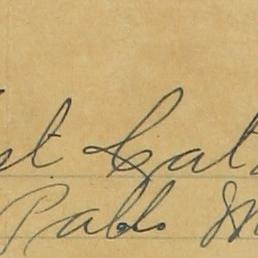 st. Cat
Pablo M